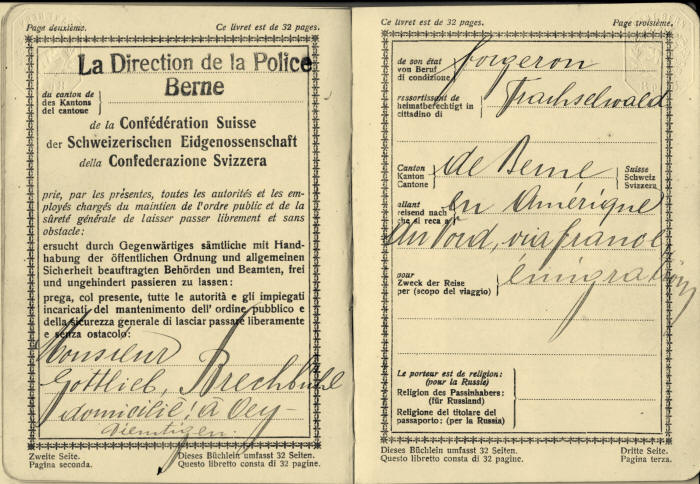 Page deuxième.
Ce livret est de 32 pages.
La Direction de la Police
Berne
du canton de
des Kantons
del cantone
de la Confédération Suisse
der Schweizerischen Eidgenossenschaft
della Confederazione Svizzera
prie, par les présentes, toutes les autorités et les em-
ployés chargés du maintien de l'ordre public et de la
sûreté générale de laisser passer librement et sans
obstacle:
ersucht durch Gegenwärtiges sämtliche mit Hand-
habung der öffentlichen Ordnung und allgemeinen
Sicherheit beauftragten Behörden und Beamten, frei
und ungehindert passieren zu lassen:
prega, col presente, tutte le autorità e gli impiegati
incaricati del mantenimento dell'ordine pubblico e
della sicurezza generale di lasciar passare liberamente
e senza ostacolo:
Monsieur
Gottlieb, Brechbühl
domicilié à Oey-
Diemtigen.
Zweite Seite.
Pagina seconda.
Dieses Büchlein umfasst 32 Seiten.
Questo libretto consta di 32 pagine.
Ce livret est de 32 pages.
Page troisième.
de son état
von Beruf
di condizione
forgeron
ressortissant de
heimatberechtigt in
cittadino di
Trachselwald
Canton
Kanton
Cantone
de Berne
Suisse
Schweiz
Svizzera
allant
reisend nach
che si reca a
en Amérique
du Nord, via france
pour
Zweck der Reise
per (scopo del viaggio)
émigration
Le porteur est de religion:
(pour la Russie)
Religion des Passinhabers:
(für Russland)
Religione del titolare del
passaporto: (per la Russia)
Dieses Büchlein umfasst 32 Seiten.
Questo libretto consta di 32 pagine.
Dritte Seite.
Pagina terza.